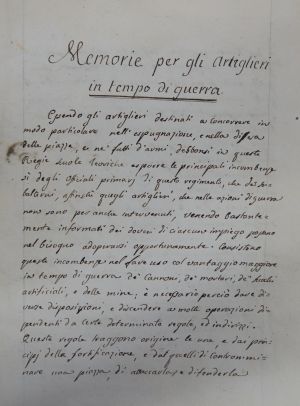 Memorie per gli Artiglieri
in tempo di guerra
Essendo gli artiglieri destinati a concorrere in
modo particolare nell'espugnazione, e nella difesa
delle piazze, e ne' fatti d'armi, debbonsi in queste
Regie Scuole Teoriche esporre le principali incombenze
si degli Ofiziali primarj di questo regimento, che de' su-
balterni, afinchè quegli artiglieri, che nelle azioni di guerra
non sono per anche intervenuti, venendo bastante-
mente informati dei doveri di ciascun impiego possano
nel bisogno adoprarsi opportunamente. Consistono
queste incombenze nel fare uso col vantaggio maggiore
in tempo di guerra de' Cannoni, de' mortari, de' fuochi
artificiali, e delle mine; è necessario perciò dare di-
verse disposizioni, e discendere a molte operazioni di-
pendenti da certe determinate regole, ed indirizzi.
Queste regole traggono origine le une, e dai prin-
cipj della fortificazione, e dal quelli di contrammi-
nare una piazza, di attaccarla, e difenderla